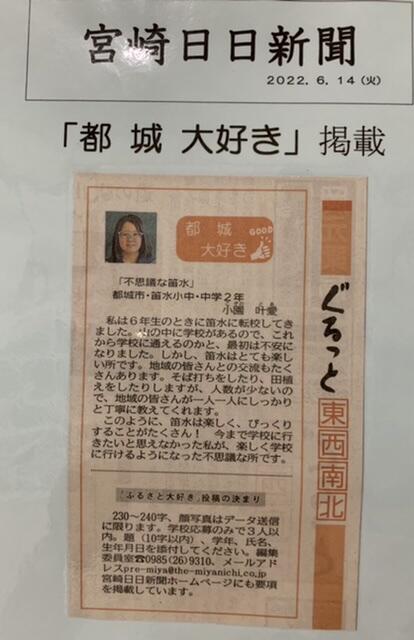 宮崎日日新聞
2022.6.14(火)
「都城 大好き」掲載
都城
大好き
GOOD
ぐるっと
東西南北
「不思議な笛水」
都城市・笛水小中・中学2年
小園 叶愛
私は6年生のときに笛水に転校してき
ました。山の中に学校があるので、これ
から学校に通えるのかと、最初は不安に
なりました。しかし、笛水はとても楽し
い所です。地域の皆さんとの交流もたく
さんあります。そば打ちをしたり、田植
えをしたりしますが、人数が少ないの
で、地域の皆さんが一人一人にしっかり
と丁寧に教えてくれます。
このように、笛水は楽しく、びっくり
することがたくさん! 今まで学校に行
きたいと思えなかった私が、楽しく学校
に行けるようになった不思議な所です。
「ふるさと大好き」投稿の決まり
230〜240字、顔写真はデータ送信
に限ります。学校応募のみで3人以
内。題(10字以内)、学年、氏名、
生年月日を添付してください。編集
委員室☎0985(26)9310、メールアド
レスpre-miya@the-miyanichi.co.jp
宮崎日日新聞ホームページにも要項
を掲載しています。